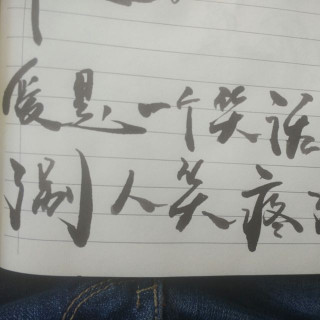 爱是一个笑话
别人笑疼